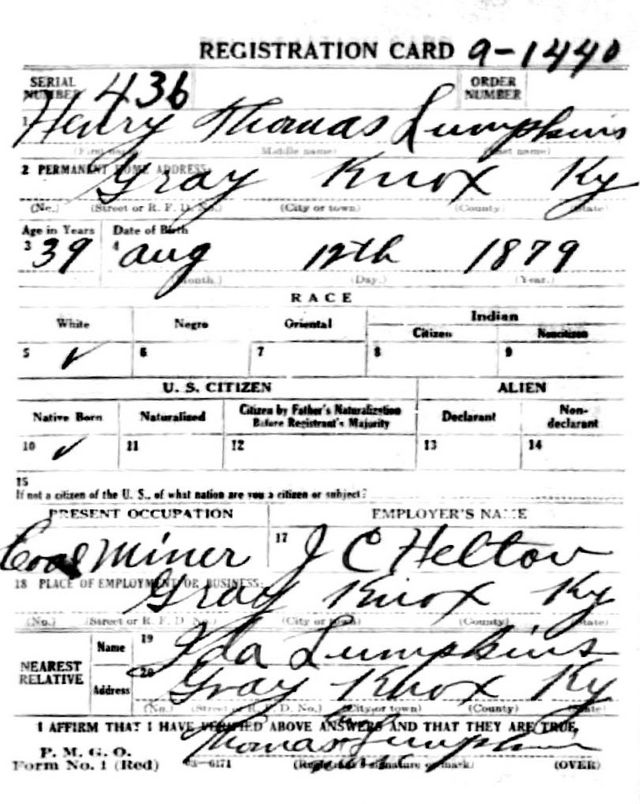 REGISTRATION CARD 9-1440
SERIAL NUMBER 436 ORDER NUMBER
1 Henry Thomas Lumpkins
(First name) (Middle name) (Last name)
2 PERMANENT HOME ADDRESS:
Gray Knox Ky
(No.) (Street or R. F. D. No.) (City or town) (County) (State)
Age in Years Date of Birth
3 39 4 Aug 12th 1879
(Month.) (Day.) (Year.)
RACE
White Negro Oriental Indian
Citizen Noncitizen
5 ✓ 6 7 8 9
U. S. CITIZEN ALIEN
Native Born Naturalized Citizen by Father's Naturalization Before Registrant's Majority Declarant Non-declarant
10 ✓ 11 12 13 14
15
If not a citizen of the U. S., of what nation are you a citizen or subject?
PRESENT OCCUPATION EMPLOYER'S NAME
Coal Miner 17 J C Helton
18 PLACE OF EMPLOYMENT OR BUSINESS:
Gray Knox Ky
(No.) (Street or R. F. D. No.) (City or town) (County) (State)
NEAREST RELATIVE Name 19 Ida Lumpkins
Address 20 Gray Knox Ky
(No.) (Street or R. F. D. No.) (City or town) (County) (State)
I AFFIRM THAT I HAVE VERIFIED ABOVE ANSWERS AND THAT THEY ARE TRUE
P. M. G. O.
Form No. 1 (Red) 03-6171 Thomas Lumpkins
(Registrant's signature or mark) (OVER)